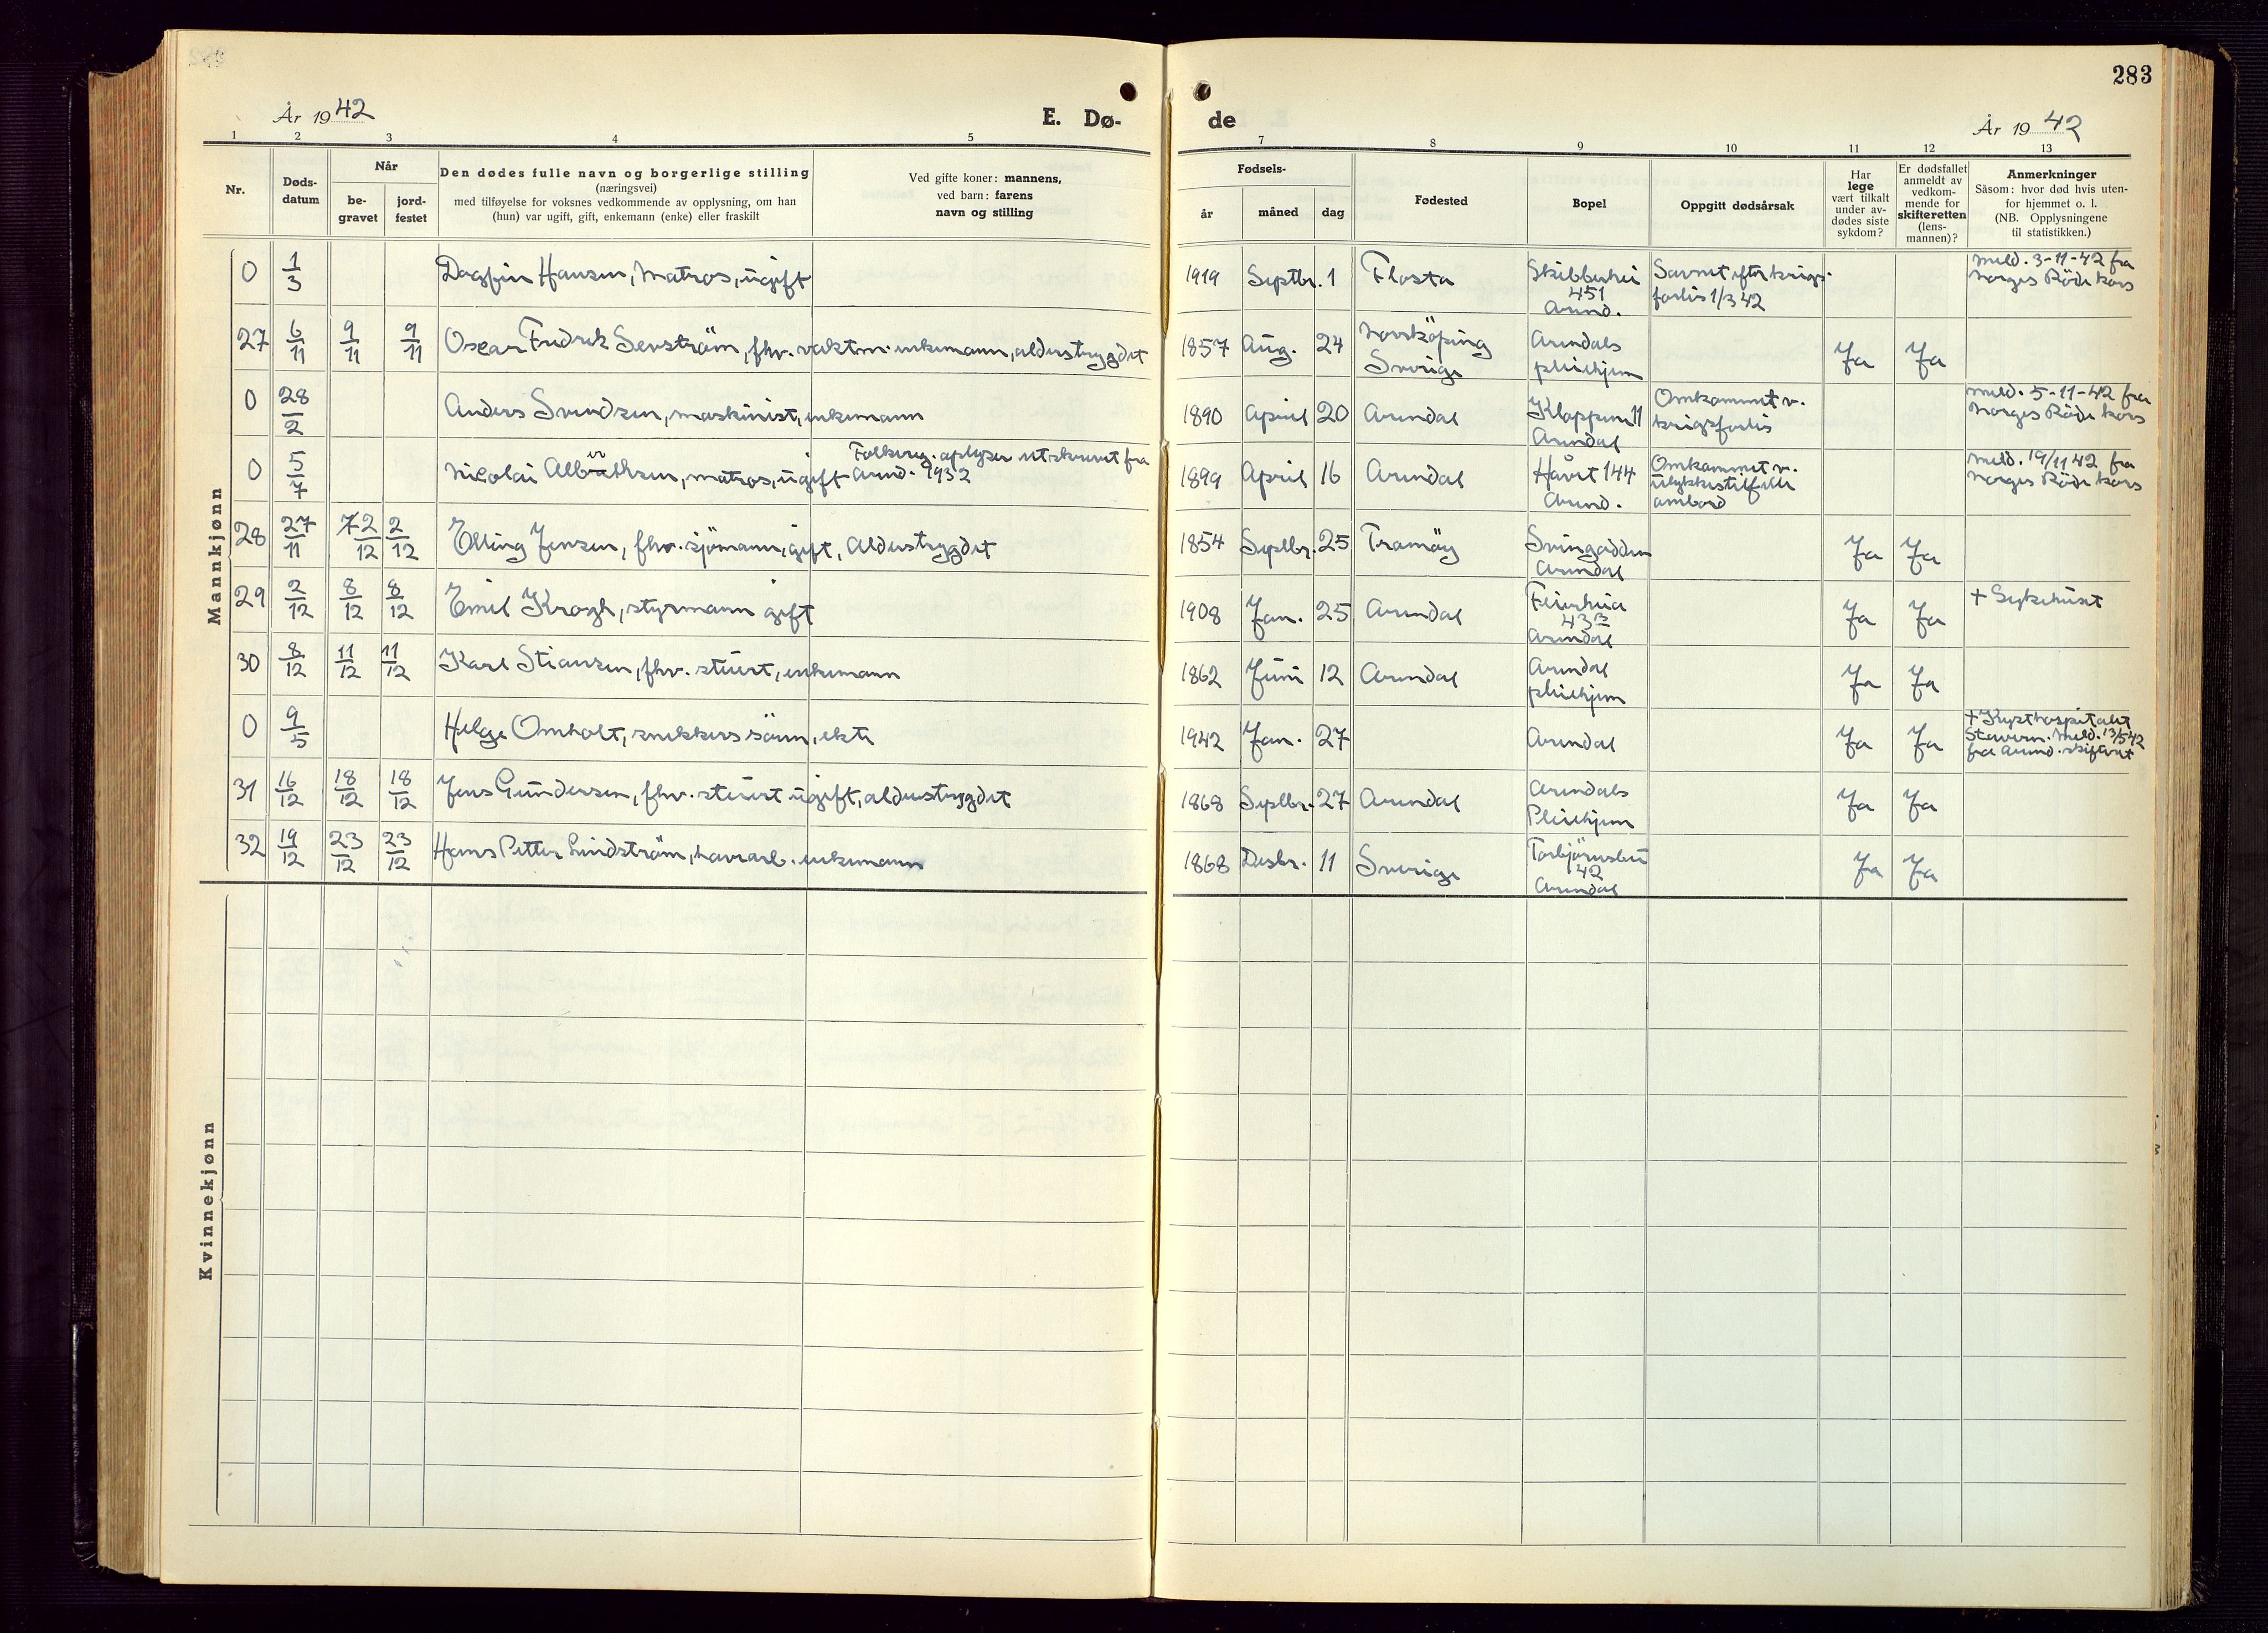 283
År 1942
E. Dø-
de
År 1942
1 2 3 4 5 7 8 9 10 11 12 13
Nr.
Døds-
datum
Når
be-
gravet
jord-
festet
Den dødes fulle navn og borgerlige stilling
(næringsvei)
med tilføyelse for voksnes vedkommende av opplysning, om han
(hun) var ugift, gift, enkemann (enke) eller fraskilt
Ved gifte koner: mannens,
ved barn: farens
navn og stilling
Fødsels-
år
måned
dag
Fødested
Bopel
Oppgitt dødsårsak
Har
lege
vært tilkalt
under av-
dødes siste
sykdom?
Er dødsfallet
anmeldt av
vedkom-
mende for
skifteretten
(lens-
mannen)?
Anmerkninger
Såsom: hvor død hvis uten-
for hjemmet o. l.
(NB. Opplysningene
til statistikken.)
Mannkjønn
0 1/3 Dagfin Hansen, Matros, ugift 1919 Septbr. 1 Flosta Skibberhei
451
Arend.
Savnet efter krigs-
forlis 1/3 42
Meld. 3-11-42 fra
Norges Röde kors
27 6/11 9/11 9/11 Oscar Fredrik Senström, fhv. vaktm. enkemann, alderstrygdet 1857 Aug. 24 Norrköping
Sverige
Arendals
pleiehjem
Ja Ja
0 28/2 Anders Svendsen, maskinist, enkemann 1890 April 20 Arendal Kloppene 11
Arendal
Omkommet v.
krigsforlis
Meld. 5-11-42 fra
Norges Röde kors
0 5/7 Nicolai Albrethsen, matros, ugift
Folkereg. oplyser utskrevet fra
Arend. 1932
1899 April 16 Arendal Håvet 144
Arend.
Omkommet v.
ulykkestilfelle
ombord
Meld. 19/11 42 fra
Norges Röde kors
28 27/11 2/12 2/12 Elling Jensen, fhv. sjömann, gift, Alderstrygdet 1854 Septbr. 25 Tromöy Svingodden
Arendal
Ja Ja
29 2/12 8/12 8/12 Emil Krogh, styrmann gift 1908 Jan. 25 Arendal Feierheia
43 B
Arendal
Ja Ja + Sykehuset
30 8/12 11/12 11/12 Karl Stiansen, fhv. stuert, enkemann 1862 Juni 12 Arendal Arendal
pleiehjem
Ja Ja
0 9/5 Helge Omholt, snekkers sönn, ekte 1942 Jan. 27 Arendal Ja Ja + Kysthospitalet
Stavern. Meld. 13/5 42
fra Arend. skifteret
31 16/12 18/12 18/12 Jens Gundersen, fhv. stuert ugift, alderstrygdet 1868 Septbr. 27 Arendal Arendals
Pleiehjem
Ja Ja
32 19/12 23/12 23/12 Hans Petter Lindström, havnarb. enkemann 1868 Desbr. 11 Sverige Torbjörnsbu
42
Arendal
Ja Ja
Kvinnekjønn